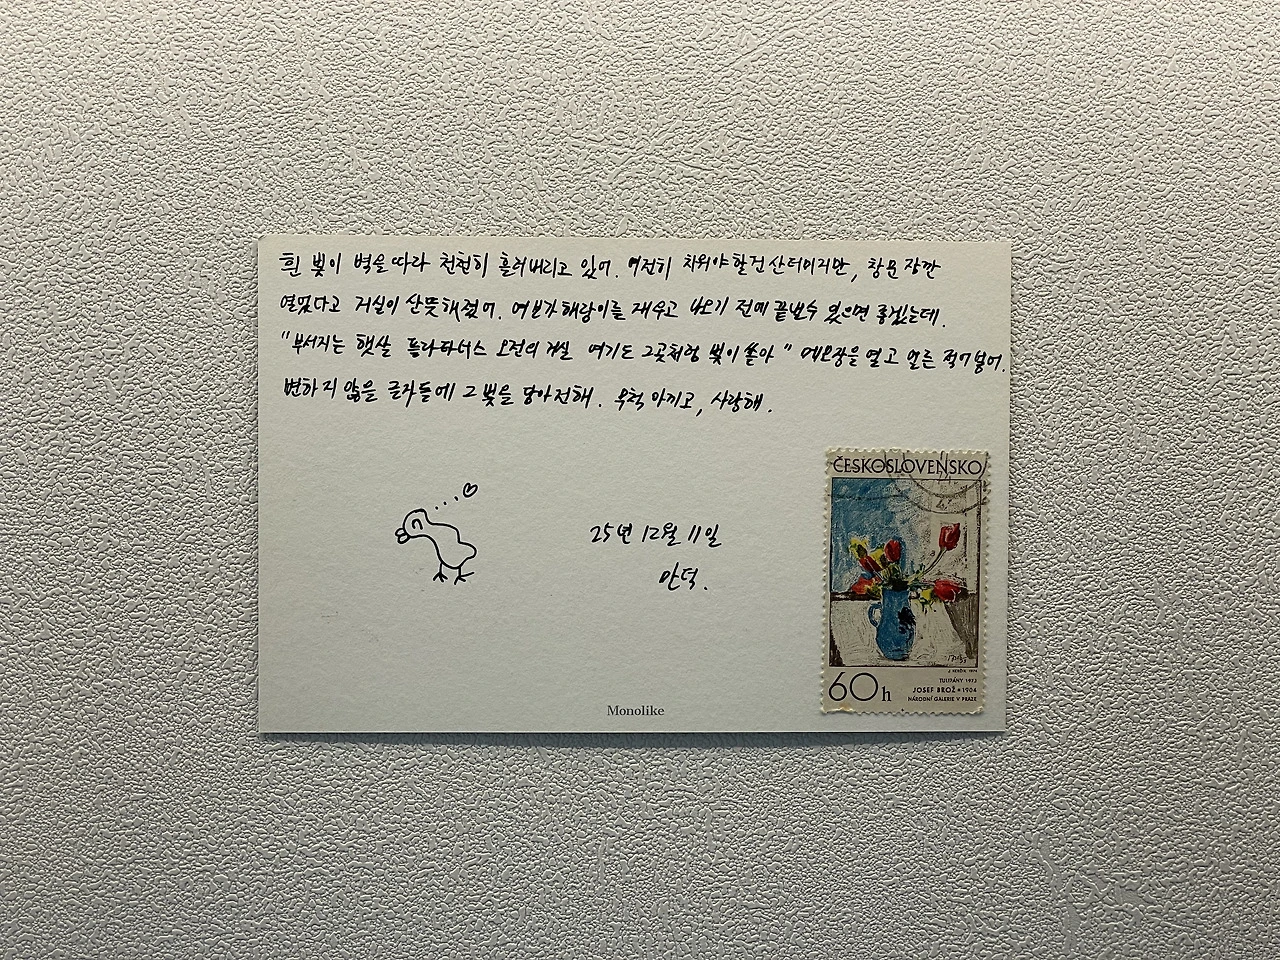 흰 빛이 벽을 따라 천천히 흘러내리고 있어. 여전히 치워야 할 건 산더미지만, 창문 잠깐
열었다고 거실이 산뜻해졌어. 여보가 해랑이를 재우고 나오기 전에 끝낼 수 있으면 좋겠는데.
"부서지는 햇살 플라타너스 오전의 거실 여기도 그곳처럼 빛이 쏟아" 메모장을 열고 얼른 적어 넣어.
변하지 않을 글자들에 그 빛을 담아 전해. 무척 아끼고, 사랑해.
25년 12월 11일
만덕.
ČESKOSLOVENSKO
TULIPÁNY 1973
60h JOSEF BROŽ * 1904
NÁRODNÍ GALERIE V PRAZE
Monolike